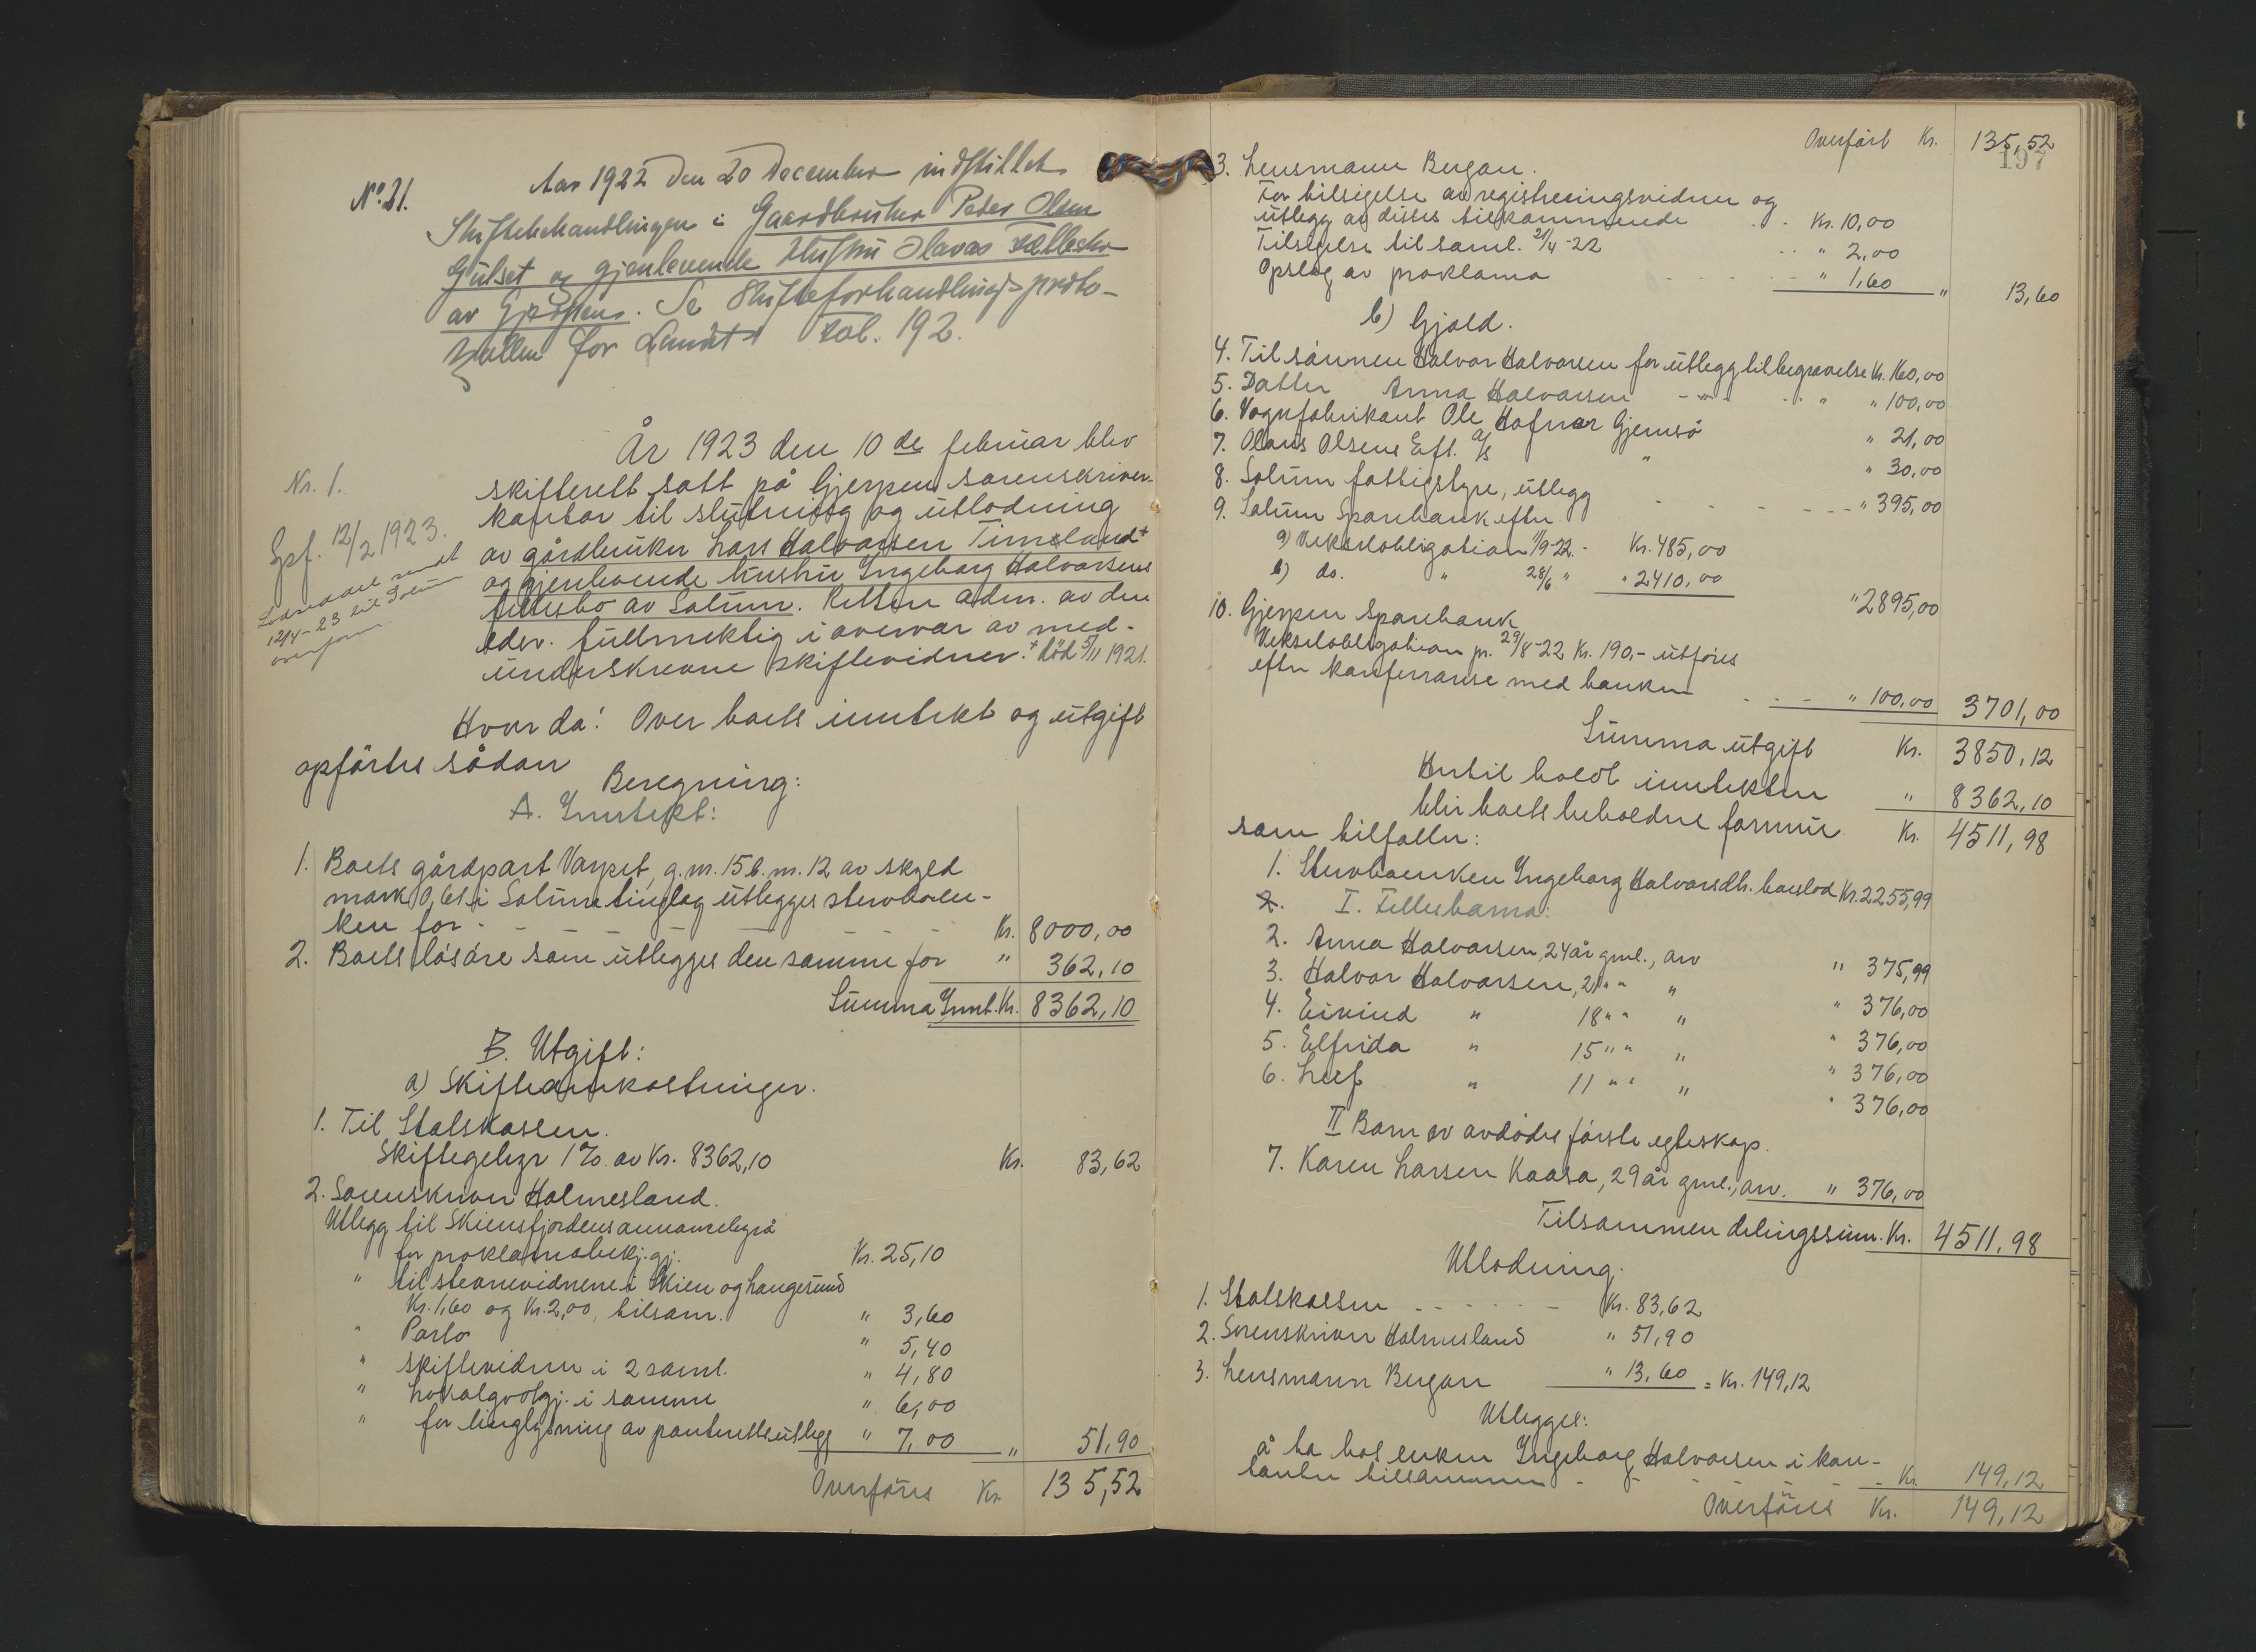 No. 21.
Aar 1922 den 20 December indstillet
Skiftebehandlingen i Gaardbruker Peder Olsen
Gulset og gjenlevende Hustru Olavas Fællesbo
av Gjerpen. Se Skifteforhandlingsproto-
kollen for Landet fol. 192.
Nr. 1.
År 1923 den 10de februar blev
skifterett satt på Gjerpen sorenskriver-
kontor til slutning og utlodning
av gårdbruker Lars Halvorsen Timsland+
og gjenlevende hustru Ingeborg Halvorsens
fellesbo av Solum. Retten adm. av den
edsv. fullmektig i overvær av med-
underskrevne skiftevidner. + död 5/11 1921.
Gpf. 12/2 1923.
Loseddel sendt
12/4-23 til Solum
overform.
Hvor da: Over boets inntekt og utgift
opförtes sådan
Beregning:
A. Inntekt:
1. Boets gårdpart Varpet, g.nr. 15 b.nr. 12 av skyld
mark 0,61 i Solum tinglag utlegges stervboen-
ken for - - - - Kr. 8000,00
2. Boets lösöre som utlegges den samme for " 362,10
Summa Innt. Kr. 8362,10
B. Utgift:
a) Skifteomkostninger.
1. Til Statskassen.
Skiftegebyr 1% av Kr. 8362,10 Kr. 83,62
2. Sorenskriver Holmesland.
Utlegg til Skiensfjordens annonsebyrå
for proklamabekj.gj. Kr. 25,10
" til stevnevidnene i Skien og Haugesund
Kr. 1,60 og Kr. 2,00, tilsam. " 3,60
" Porto " 5,40
" skiftevidner i 2 saml. " 4,80
" Lokalgodtgj. i samme " 6,00
" for tinglysning av panterettsutlegg " 7,00 " 51,90
Overföres Kr. 135,52
Overfört Kr. 135,52
197
3. Lensmann Bergan.
For tilsigelse av registreringsvidner og
utlegg av disses tilkommende - - Kr. 10,00
Tilsigelse til saml. 21/4-22 - - " 2,00
Opslag av proklama - - " 1,60 " 13,60
b) Gjeld.
4. Til sönnen Halvor Halvorsen for utlegg til begravelse Kr. 160,00
5. Datter Anna Halvorsen - " - " " 100,00
6. Vognfabrikant Ole Hofner Gjemsö " 21,00
7. Olaus Olsens Eft. A/S " " 30,00
8. Solum fattigstyre, utlegg - - - - " 395,00
9. Solum Sparebank efter
a) Vekselobligation 1/9-22 - Kr. 485,00
b) do. " 28/6 " " 2410,00 " 2895,00
10. Gjerpen Sparebank
Vekselobligation pr. 29/8-22 Kr. 190,- utföres
efter konferranse med banken - - " 100,00 3701,00
Summa utgift Kr. 3850,12
Hertil holdt inntekten " 8362,10
blir boets beholdne formue Kr. 4511,98
som tilfaller:
1. Stervboenken Ingeborg Halvorsdtr. boeslod Kr. 2255,99
2. I. Fellesbarna:
2. Anna Halvorsen, 24 år gml., arv " 375,99
3. Halvor Halvorsen, 21 " " " " 376,00
4. Eivind " 18 " " " " 376,00
5. Elfrida " 15 " " " " 376,00
6. Leif " 11 " " " " 376,00
II Barn av avdödes förste egteskap.
7. Karen Larsen Kaasa, 29 år gml., arv. " 376,00
Tilsammen delingssum. Kr. 4511,98
Utlodning.
1. Statskassen - - - - - Kr. 83,62
2. Sorenskriver Holmesland " 51,90
3. Lensmann Bergan " 13,60 = Kr. 149,12
Utlegges:
å ha hos enken Ingeborg Halvorsen i kon-
tanter tilsammen - - - - - Kr. 149,12
Overföres Kr. 149,12